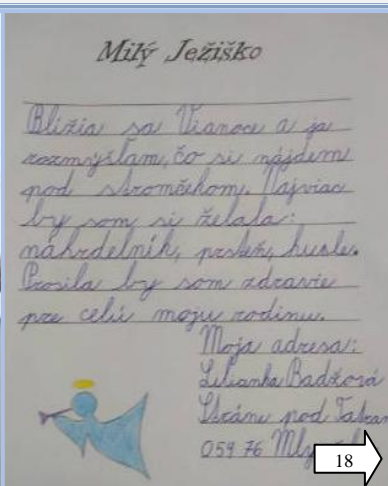 Milý Ježiško
Blížia sa Vianoce a ja
rozmýšľam, čo si nájdem
pod stromčekom. Najviac
by som si želala:
náhrdelník, prsteň, husle.
Prosila by som zdravie
pre celú moju rodinu.
Moja adresa:
Lilianka Badžová
Stráne pod Tatran
059 76 Mly
18